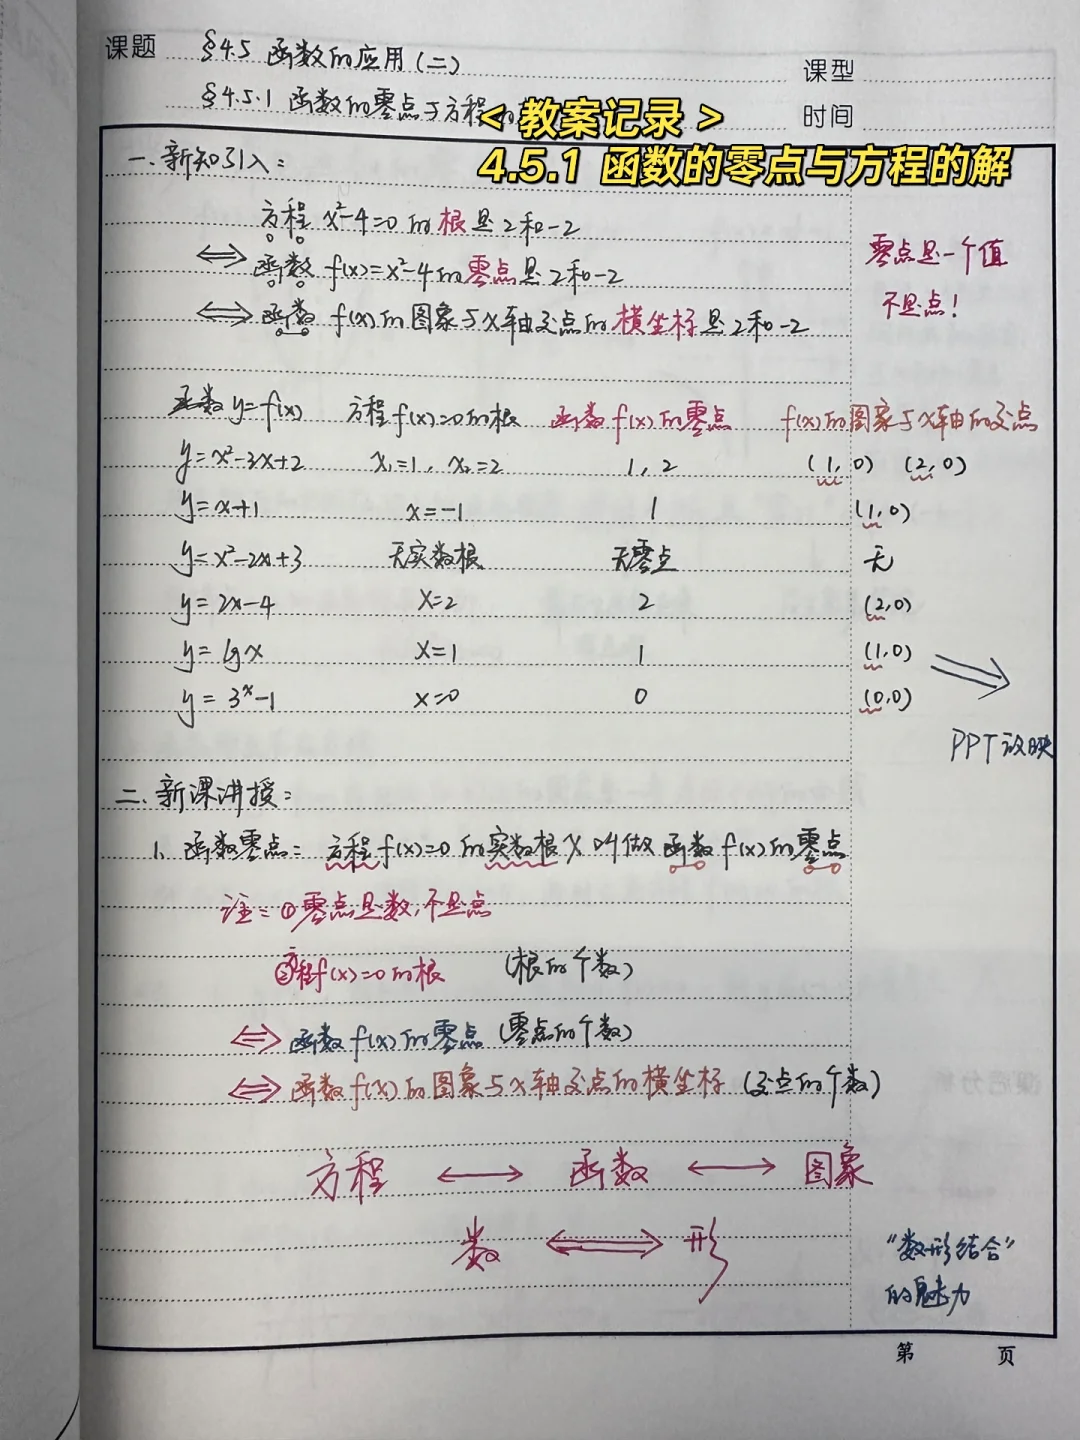 课题 §4.5 函数的应用(二)
课型
§4.5.1 函数的零点与方程
时间
<教案记录>
4.5.1 函数的零点与方程的解
一.新知引入:
方程 x²-4=0 的根是2和-2
⟺ 函数 f(x)=x²-4的零点是2和-2
⟺ 函数 f(x)的图象与x轴交点的横坐标是2和-2
零点是一个值
不是点!
函数 y=f(x) 方程f(x)=0的根 函数f(x)的零点 f(x)的图象与x轴的交点
y=x²-3x+2 x₁=1, x₂=2 1, 2 (1,0) (2,0)
y=x+1 x=-1 1 (1,0)
y=x²-2x+3 无实数根 无零点 无
y=2x-4 x=2 2 (2,0)
y=lgx x=1 1 (1,0)
y=3ˣ-1 x=0 0 (0,0)
PPT放映
二.新课讲授:
1. 函数零点: 方程f(x)=0的实数根x叫做函数f(x)的零点
注:①零点是数,不是点
②方程f(x)=0的根 (根的个数)
⟺ 函数f(x)的零点 (零点的个数)
⟺ 函数f(x)的图象与x轴交点的横坐标 (交点的个数)
方程 ⟷ 函数 ⟷ 图象
数 ⟺ 形
"数形结合"
的魅力
第 页